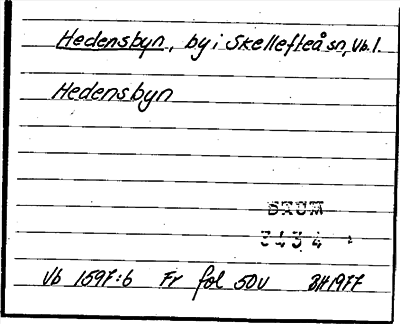 Hedensbyn, by i Skellefteå sn, Vb. l.
Hedensbyn
Vb 1597:6 Fr fol 50v BH1977